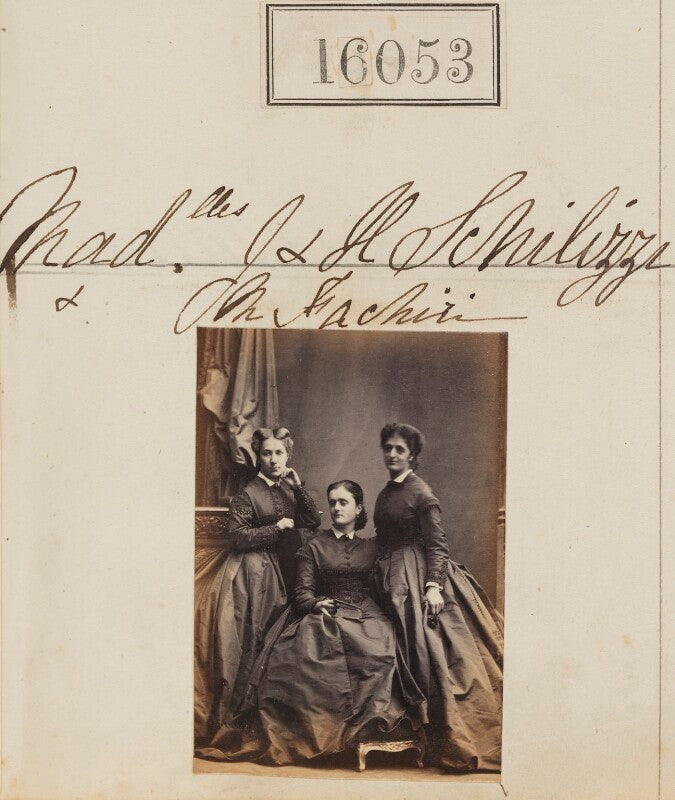 16053
Mad.lles J & H Schilizzi
& Th Fachiri